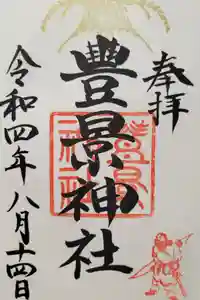 奉拝
豊景神社
令和四年八月十四日